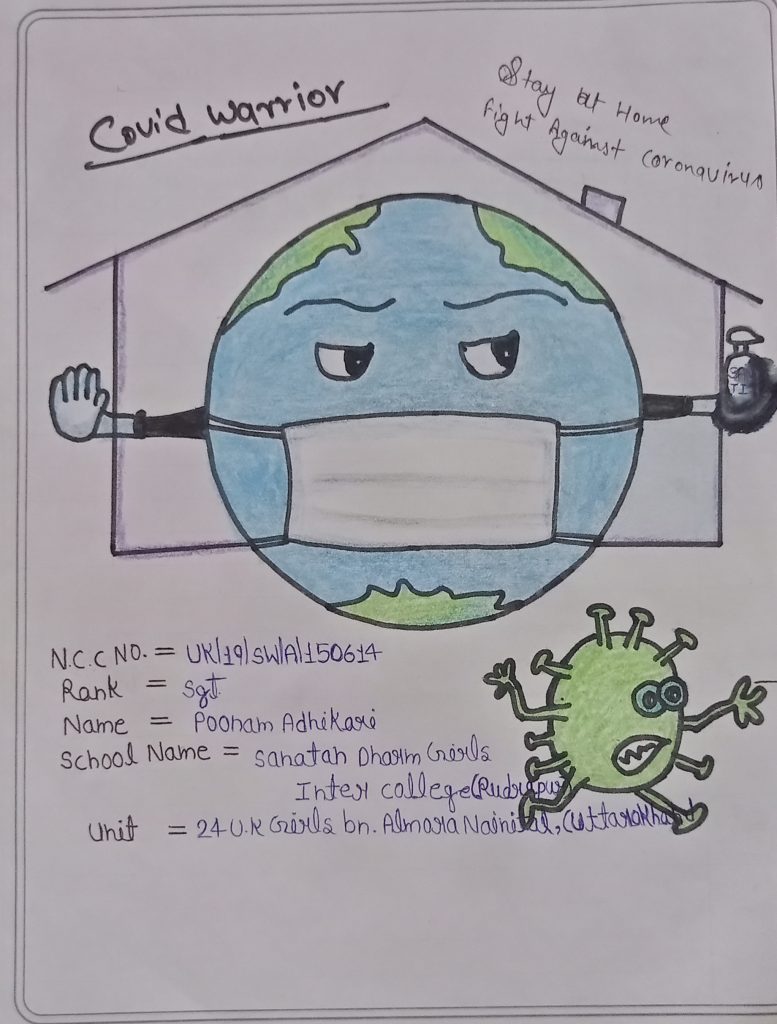 Covid Warrior
Stay at Home
Fight Against Coronavirus
SA
TI
N.C.C NO. = UK/19/SW/A/150614
Rank = Sgt.
Name = Poonam Adhikari
School Name = Sanatan Dharm Girls
Inter college(Rudrapur)
Unit = 24 U.K Girls bn. Almora Nainital, (Uttarakhand